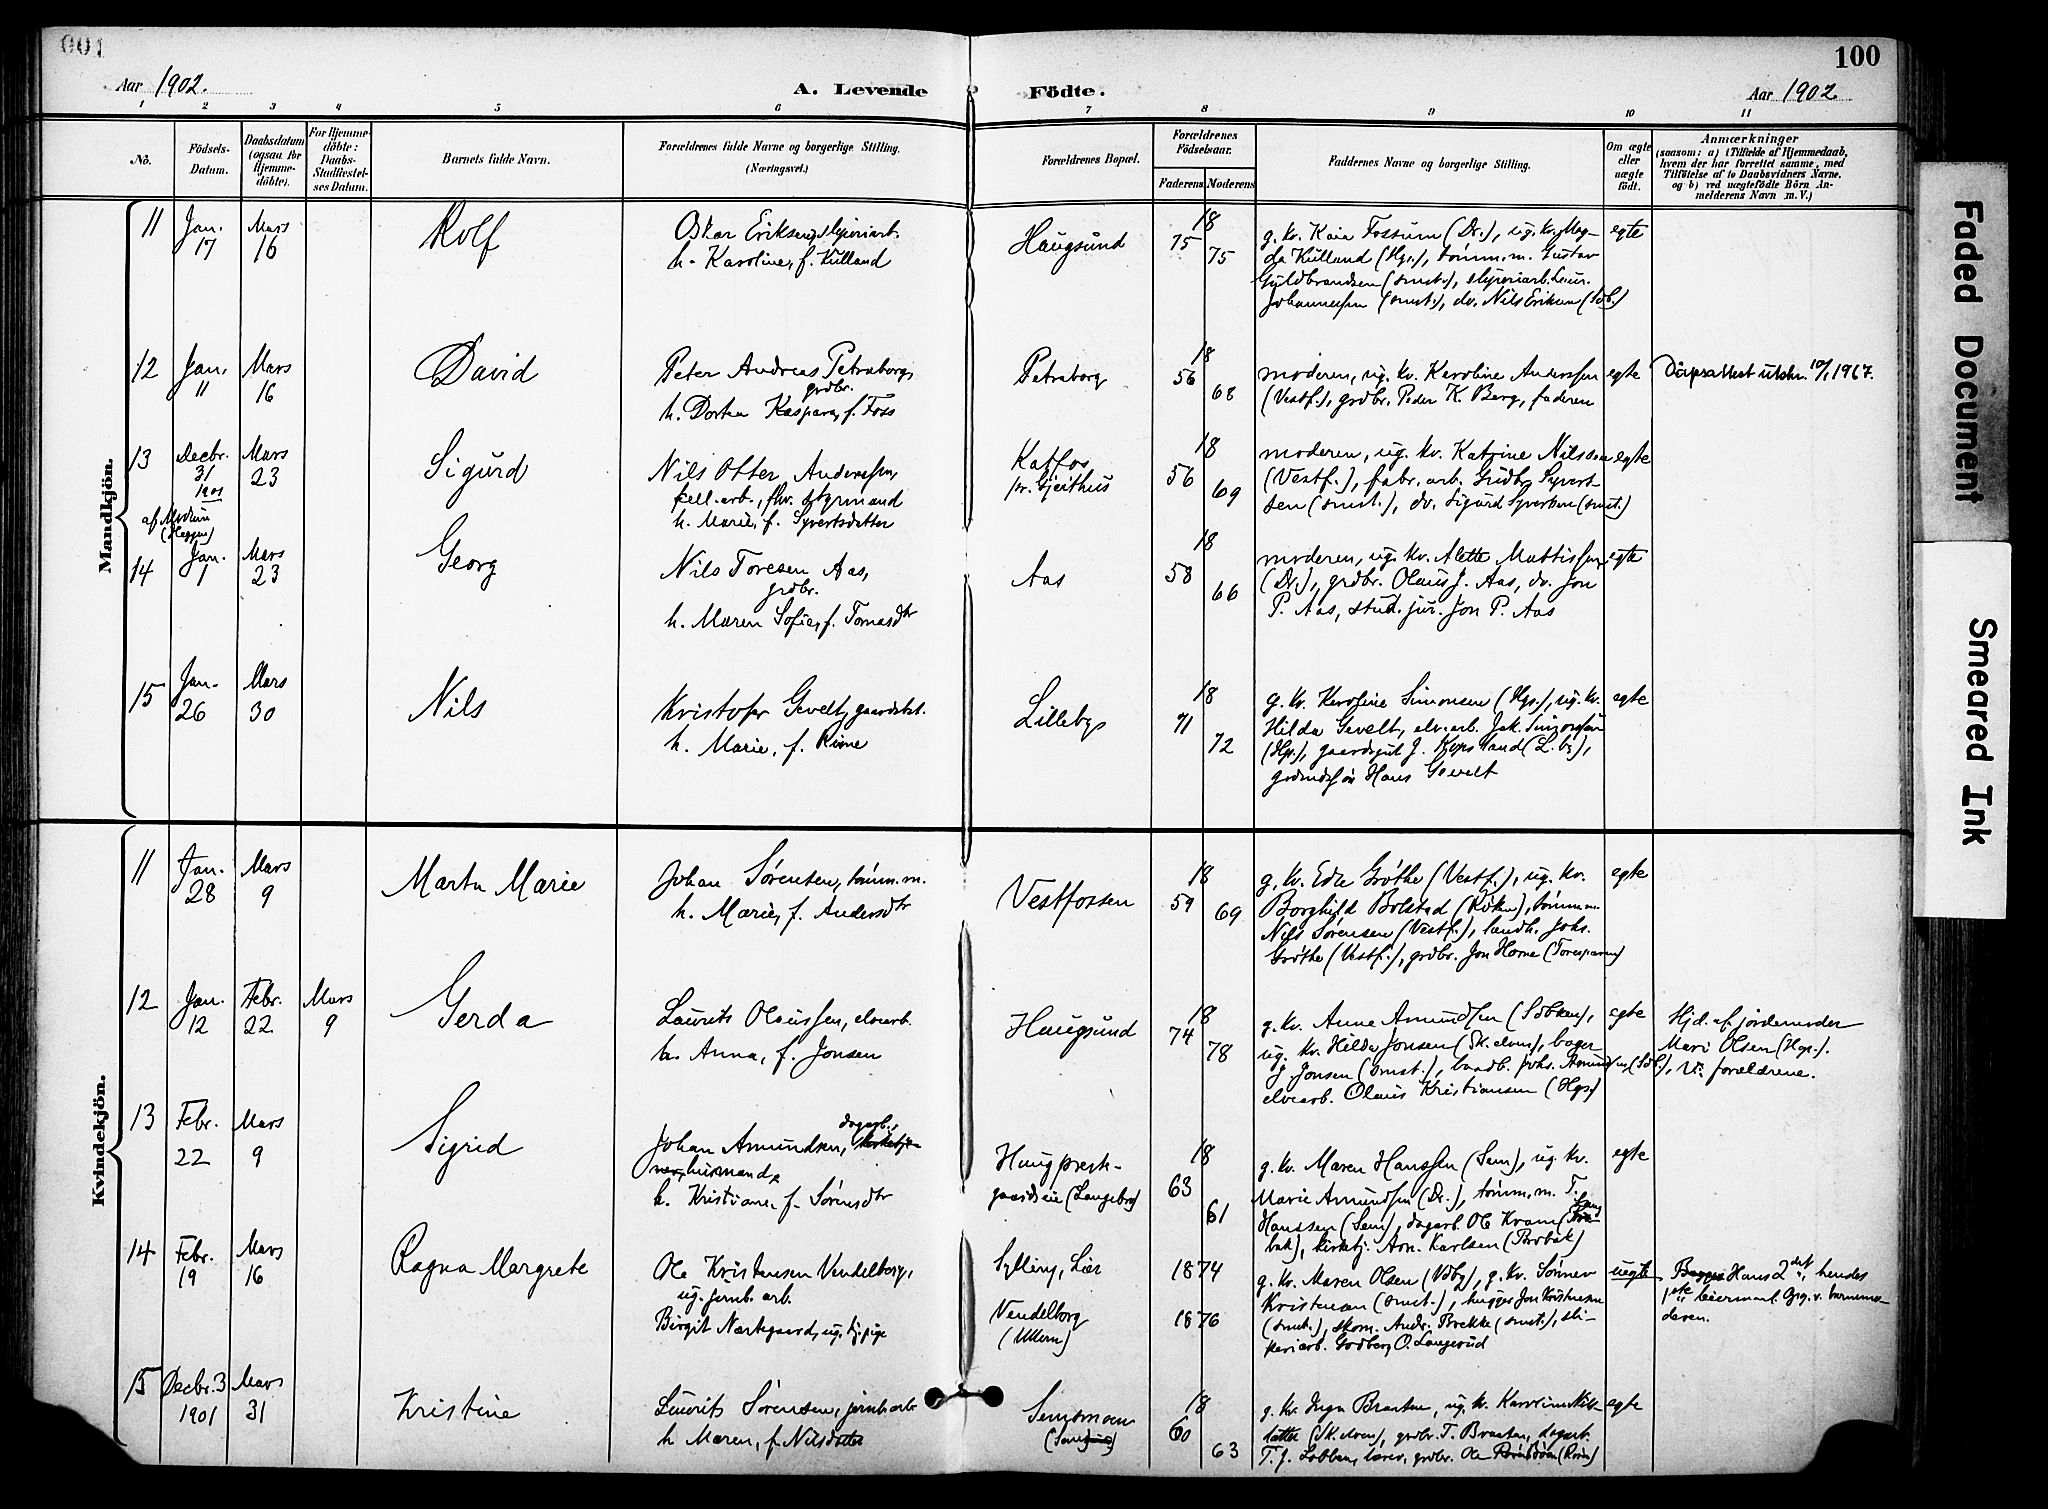 100
Aar 1902.
A. Levende Födte.
Aar 1902
1 2 3 4 5 6 7 8 9 10 11
No.
Födsels-Datum.
Daabsdatum (ogsaa for Hjemme-döbte).
For Hjemme-döbte: Daabs-Stadfæstel-ses Datum.
Barnets fulde Navn.
Forældrenes fulde Navne og borgerlige Stilling. (Næringsvei.)
Forældrenes Bopæl.
Forældrenes Födselsaar.
Faderens Moderens
Faddernes Navne og borgerlige Stilling.
Om ægte eller uægte födt.
Anmærkninger
(saasom: a) i Tilfælde af Hjemmedaab,
hvem der har forrettet samme, med
Tilföielse af to Daabsvidners Navne.
og b) ved uægtefödte Börn An-
melderens Navn m. V.)
Mandkjön.
11 Jan. 17 Mars 16
Rolf
Oskar Eriksen, sliperiarb.
h. Karoline, f. Kulland
Haugsund
18 75 75
g. kv. Kaia Fossum (Dr.), ug. kv. Mag-
da Kulland (Hgs.), tømm.m. Gustav
Guldbrandsen (smst.), sliperiarb. Laur.
Johannessen (smst.), dv. Nils Eriksen
egte
12 Jan. 11 Mars 16
David
Peter Andreas Petraborg,
grdbr.
h. Dortea Kaspara, f. Foss
Petraborg
18 56 68
moderen, ug. kv. Karoline Anderssen
(Vestf.), grdbr. Peder K. Berg, faderen
egte
Dåpsattest utskr. 10/1 1967.
13 Decbr. 31 1901 Mars 23
af Modum (Heggen)
Sigurd
Nils Otter Anderssen,
cell. arb., fhv. styrmand
h. Marie, f. Syvertsdatter
Katfos
pr. Gjeithus
18 56 69
moderen, ug. kv. Katrine Nilssen
(Vestf.), fabr. arb. Gudbr. Syvert
sen (smst.), dv. Sigurd Syversen (smst.)
egte
14 Jan. 1 Mars 23
Georg
Nils Toresen Aas,
grdbr.
h. Maren Sofie, f. Tomasdtr
Aas
18 58 66
moderen, ug. kv. Alette Mattissen
(Dr.), grdbr. Olaus J. Aas, dv. Jon
P. Aas, stud. jur. Jon P. Aas
egte
15 Jan. 26 Mars 30
Nils
Kristofer Gevelt, gaardsbest.
h. Marie, f. Rime
Lilleby
18 71 72
g. kv. Karoline Simonsen (Hgs.), ug. kv.
Hilda Gevelt, elv. arb. Jak. Simonsen
(Hgs.), gaardsgut J. Kopsland (L. by),
grdmdsøn Hans Gevelt
egte
Kvindekjön.
11 Jan. 28 Mars 9
Marta Marie
Johan Sørensen, tømm.m.
h. Marie, f. Andersdtr
Vestfossen
18 59 69
g. kv. Edle Grøthe (Vestf.), ug. kv.
Borghild Bolstad (Røken), tømm.m.
Nils Sørensen (Vestf.), landh. Johs.
Grøthe (Vestf.), grdbr. Jon Horne
egte
12 Jan. 12 Febr. 22 Mars 9
Gerda
Laurits Olaussen, elvearb.
h. Anna, f. Jonsen
Haugsund
18 74 78
g. kv. Anna Amundsen (Solbken),
ug. kv. Hilda Jonsen (Sk. elven), bager
J. Jonsen (smst.), baadb. Johs. Amundsen
elvearb. Olaus Kristiansen (Hgs)
egte
Hjd. af jordemoder
Mari Olsen (Hgs.).
V: forældrene.
13 Febr. 22 Mars 9
Sigrid
Johan Amundsen, dagarb.,
husmand,
h. Kristiane, f. Sørensdtr
Haug prest-
gaardseie (Langebro)
18 63 61
g. kv. Maren Hanssen (Sem), ug. kv.
Marie Amundsen (Dr.), tømm.m. T.
Hanssen (Sem), dagarb. Ole Kram
kirketj. Aon. Karlsen (Brobak)
egte
14 Febr. 19 Mars 16
Ragna Margrete
Ole Kristensen Vendelborg,
ug. jernb. arb.
Birgit Nærtegaard, ug. tj. pige
Sylling, Lier
Vendelborg
(Ullern)
1874
1876
g. kv. Maren Olsen (Vdbg), g. kv. Sønnev
Kristensen (smst.), hugger Jon Kristensen
(smst.), skom. Andr. Brekke (smst.), sli-
periarb. Godberg O. Langerud
uegte
Hans 2det, hendes
1ste leiermaal. Opg. v. barnemo-
deren.
15 Decbr. 3 1901 Mars 31
Kristine
Laurits Sørensen, jernb. arb
h. Maren, f. Nilsdatter
Semsmoen
18 60 63
g. kv. Inga Braaten, ug. kv. Karoline Nils-
datter (Sk. elven), grdbr. T. Braaten, dagarb.
T. J. Lobben, lærer, grdbr. Ole
egte
Faded Document
Smeared Ink